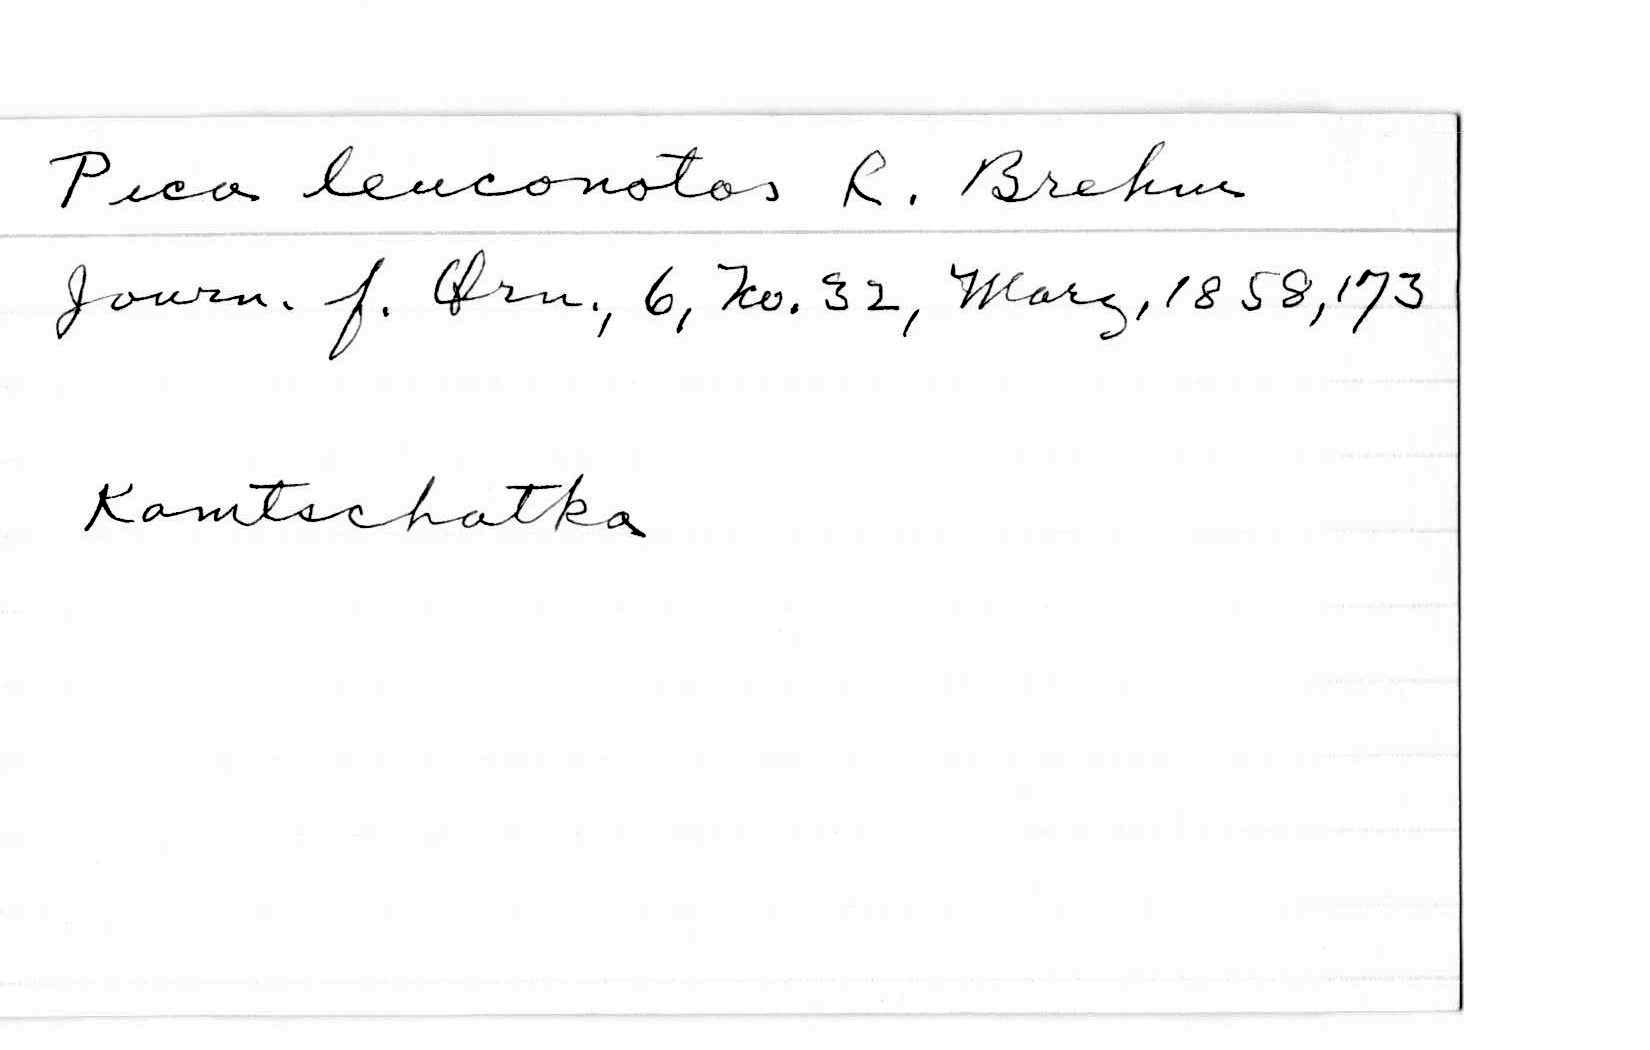 Pica leuconotos R. Brehm
Journ. f. Orn., 6, No. 32, Marz, 1858, 173
Kamtschatka